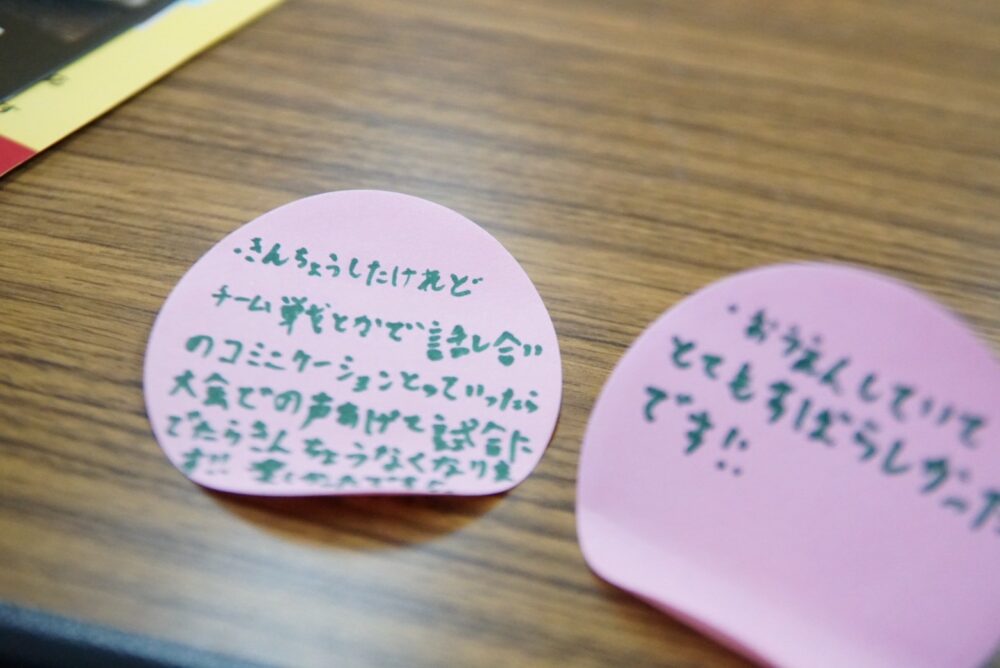 ・きんちょうしたけれど
チーム戦とかで話し合い
のコミニケーションとっていったら
大会での声あげて試合に
でたらきんちょうなくなりま
す!! 楽しかったです!!
・おうえんしていて
とてもすばらしかった
です!!